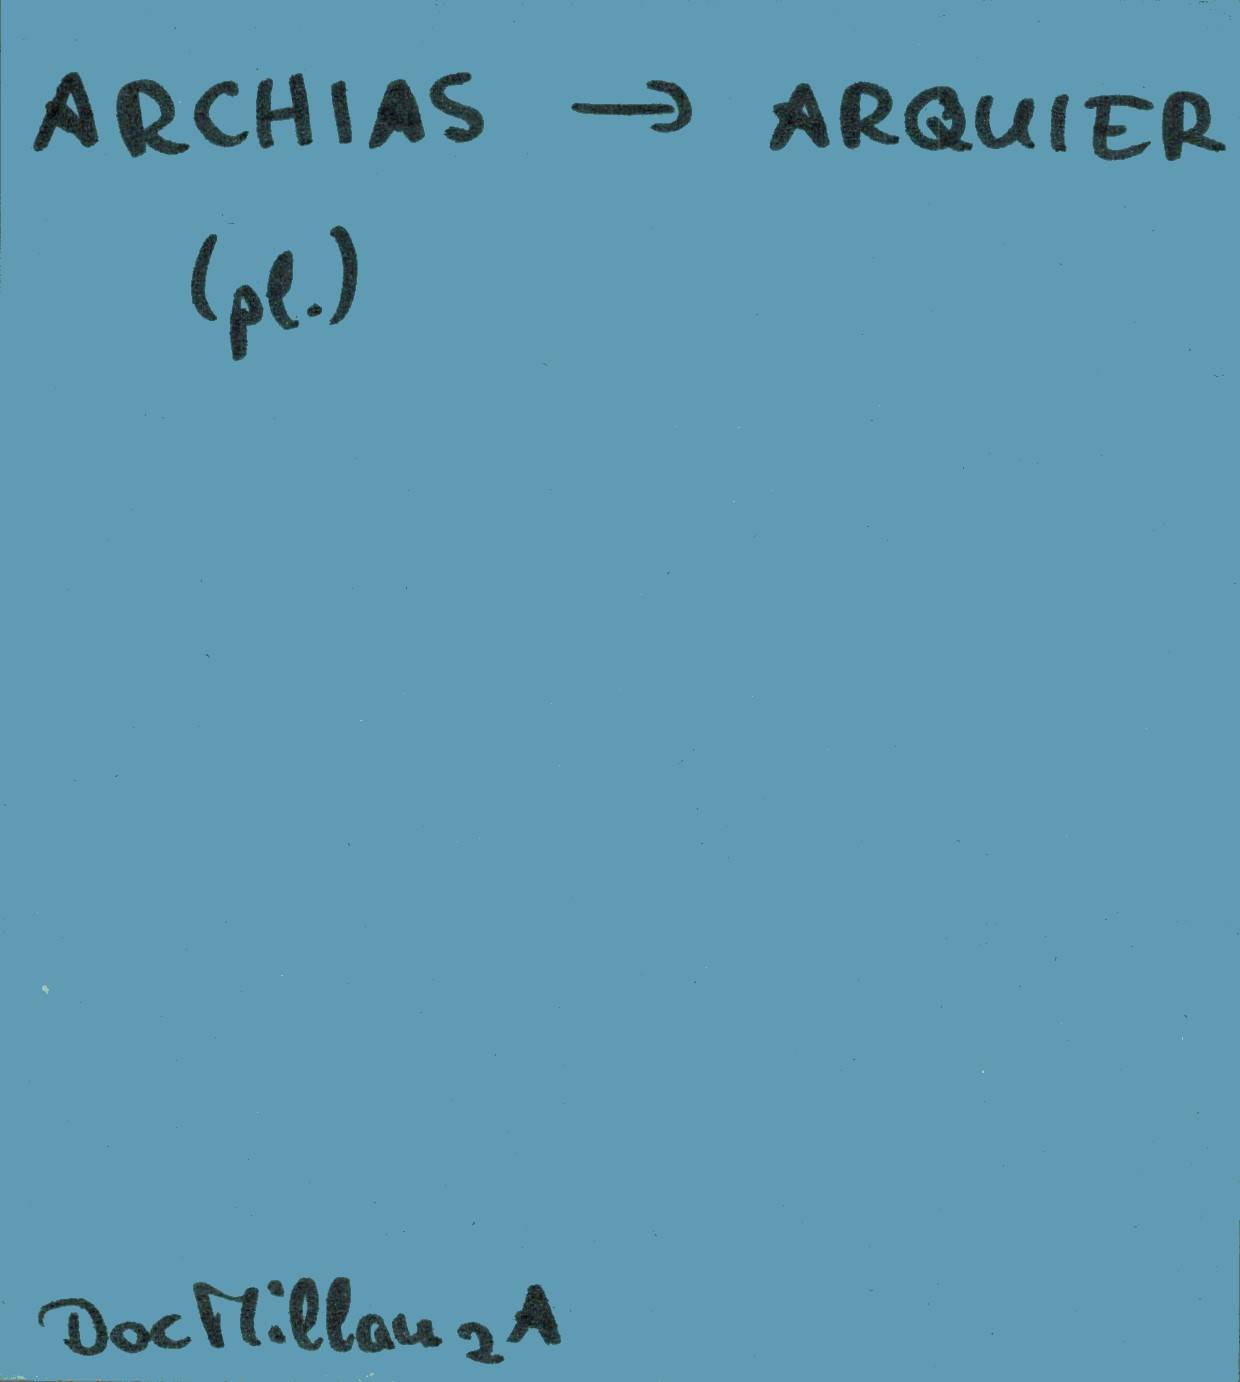 ARCHIAS → ARQUIER
(pl.)
DocMillau 2 A